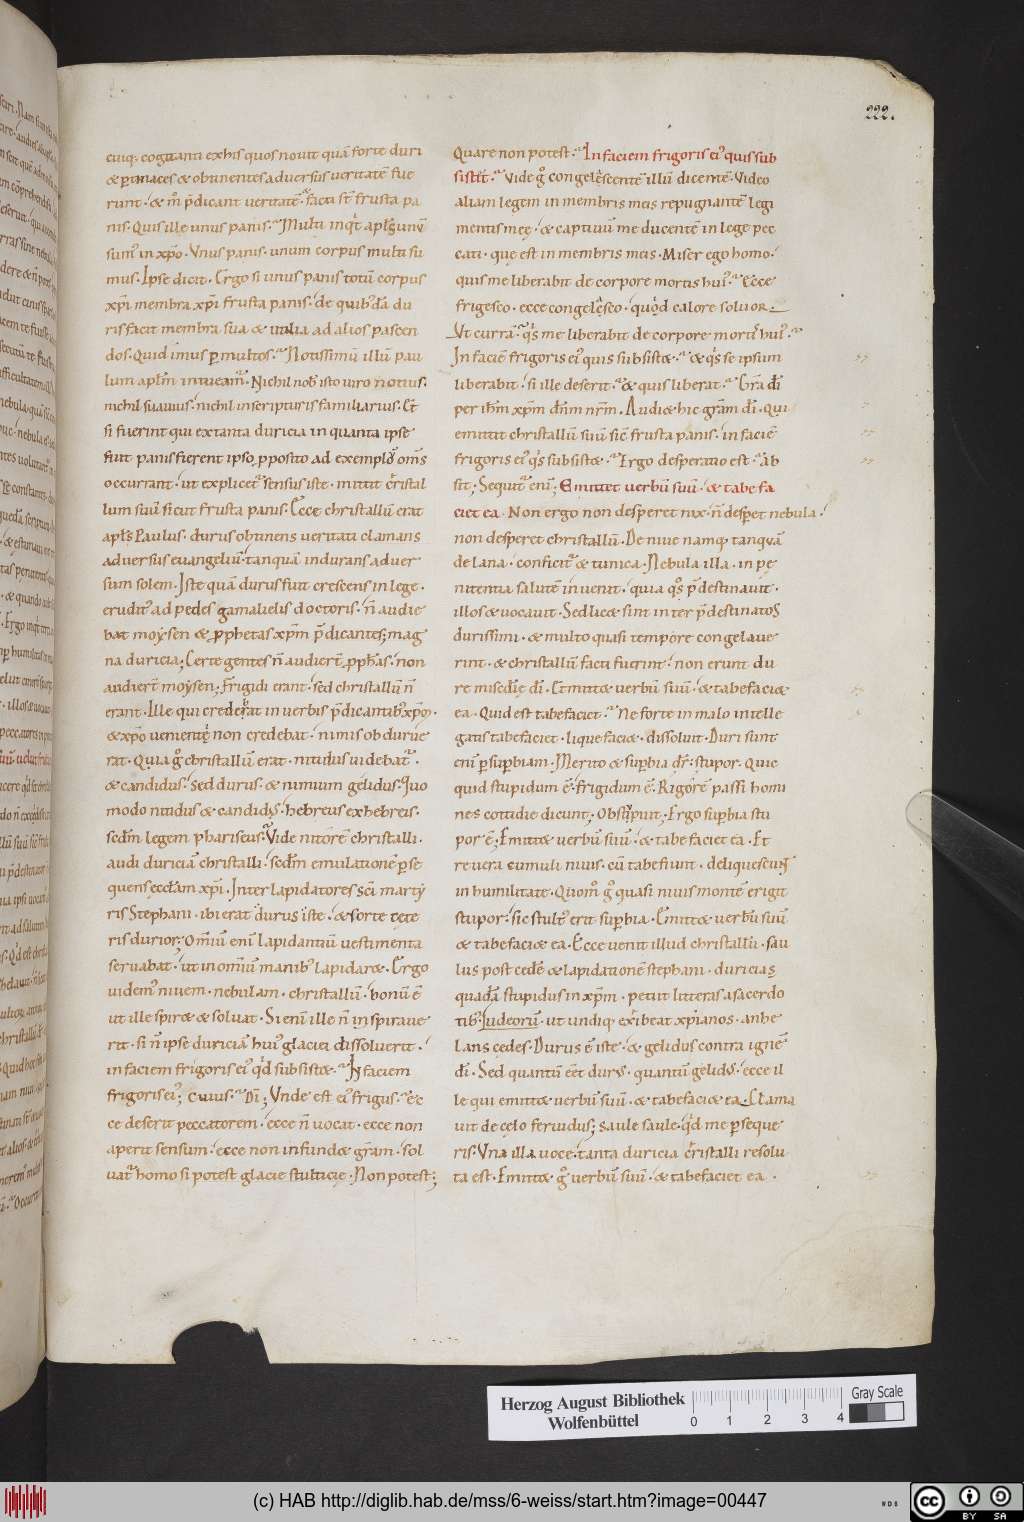 222.
cuiq; cogitanti ex his quos nouit quā forte duri
& ꝑtinaces & obtinentes aduersus ueritatē fue
runt. & m̄ p̄dicant ueritatē. facti st̄ frusta pa
nis. Quis ille unus panis. Multi inq̇t apl̄s unū
sumꝰ in xp̄o. Vnus panis. unum corpus multi su
mus. Ipse dicit. Ergo si unus panis totū corpus
xp̄i. membra xp̄i frusta panis. de quibꝰdā du
ris facit membra sua & utilia ad alios pascen
dos. Quid imus ꝑ multos. Notissimū illū pau
lum apl̄m intueamr̄. Nichil nob̄ isto uiro notius.
nichil suauius. nichil in scripturis familiarius. Et
si fuerint qui ex tanta duricia in quanta ipse
fuit panis fierent ipso ꝓposito ad exemplū om̄s
occurrant. ut explicetr̄ sensus iste. mittit c̄ristal
lum suū sicut frusta panis. Ecce christallū erat
apl̄s Paulus. durus obtinens ueritati clamans
aduersus euangeliū. tanquā indurans aduer
sum solem. Iste quā durus fuit crescens in lege.
eruditꝰ ad pedes gamalielis doctoris. n̄ audie
bat moysen & ꝓphetas xp̄m p̄dicantes; mag
na duricia; Certe gentes n̄ audierꝫ ꝓph̄as. non
audierꝫ moysen; Frigidi erant. sed christallū n̄
erant. Ille qui crederat in uerbis p̄dicantibꝰ xp̄o.
& xp̄o uenientē non credebat. nimis obdurue
rat. Quia g̊ christallū erat. nitidus uidebatr̄.
& candidus. sed durus. & nimium gelidus. Quo
modo nitidus & candidꝰ. hebreus ex hebreis.
secdm̄ legem phariseus. Vide nitorē christalli.
audi duriciā christalli. secdm̄ emulationē ꝑse
quens eccl̄am xp̄i. Inter lapidatores sc̄i marty
ris Stephani. ibi erat durus iste. & forte cete
ris durior. Omīū enī lapidantiū uestimenta
seruabat. ut in omīū manibꝰ lapidaret. Ergo
uidemꝰ niuem. nebulam. christallū. bonū ē
ut ille spiret & soluat. Si enī ille n̄ inspiraue
rit. si n̄ ipse duriciā huiꝰ glaciei dissoluerit.
in faciem frigoris eiꝰ qꝭ subsistet. In faciem
frigoris eiꝰ; Cuius. Dī; Vnde est eiꝰ frigus. ec
ce deserit peccatorem. ecce n̄ uocat. ecce non
aperit sensum. ecce non infundet grām. sol
uatr̄ homo si potest glacie stulticię. Non potest;
Quare non potest. In faciem frigoris eiꝰ quis sub
sistet. Vide g̊ congelescentē illū dicentē. Video
aliam legem in membris meis repugnantē legi
mentis meę. & captiuū me ducentē in lege pec
cati. que est in membris meis. Miser ego homo.
quis me liberabit de corpore mortis huiꝰ. Ecce
frigesco. ecce congelesco. quod calore soluor.
Vt currā. qs̄ me liberabit de corpore mortis huiꝰ.
In faciē frigoris eiꝰ quis subsistet. & qs̄ se ipsum
liberabit. si ille deserit. & quis liberat. Grā dī
per ih̄m xp̄m dn̄m nrm̄. Audi & hic grām dī. Qui
emittit christallū suū sic̄ frusta panis. in faciē
frigoris eiꝰ qs̄ subsistet. Ergo desperatio est. ab
sit; Sequitr̄ enī; Emittet uerbū suū. & tabefa
ciet ea. Non ergo non desperet nix. n̄ desꝑet nebula.
non desperet christallū. De niue namq; tanquā
de lana. conficitr̄ & tunica. Nebula illa. in pę
nitentia salutē inuenit. quia qs̄ p̄destinauit.
illos & uocauit. Sed licet sint inter p̄destinatos
durissimi. & multo quasi tempore congelaue
rint. & christallū facti fuerint. non erunt du
re miscd̄ie dī. Emittet uerbū suū. & tabefaciet
ea. Quid est tabefaciet. Ne forte in malo intelle
gatis tabefaciet. liquefaciet. dissoluit. Duri sunt
enī ꝑ suꝑbiam. Merito & suꝑbia dr̄. stupor. Quic
quid stupidum ē. frigidum ē. Rigorē passi homi
nes cottidie dicunt; Obstipui; Ergo suꝑbia stu
por ē; Emittet uerbū suū. & tabefaciet ea. Et
re uera cumuli niuis. cū tabefiunt. deliquescunt
in humilitate. Quom̄ g̊ quasi niuis montē erigit
stupor. sic stultꝰ erit suꝑbia. Emittet uerbū suū
& tabefaciet ea. Ecce uenit illud christallū. sau
lus post cedē & lapidationē stephani. duricia
quadā stupidus in xp̄m. petiit litteras a sacerdo
tibꝰ Iudeorū. ut undiq; exibeat xp̄ianos. anhe
lans cedes. Durus ē iste. & gelidus contra ignē
dī. Sed quantū eēt durꝰ. quantū gelidꝰ. ecce il
le qui emittet uerbū suū. & tabefaciet ea. Clama
uit de cęlo feruidus; saule saule. qd̄ me ꝑseque
ris. Vna illa uoce. tanta duricia c̄ristalli resolu
ta est. Emittet g̊ uerbū suū. & tabefaciet ea.
Herzog August Bibliothek
Wolfenbüttel
0 1 2 3 4
Gray Scale
(c) HAB http://diglib.hab.de/mss/6-weiss/start.htm?image=00447
cc BY SA